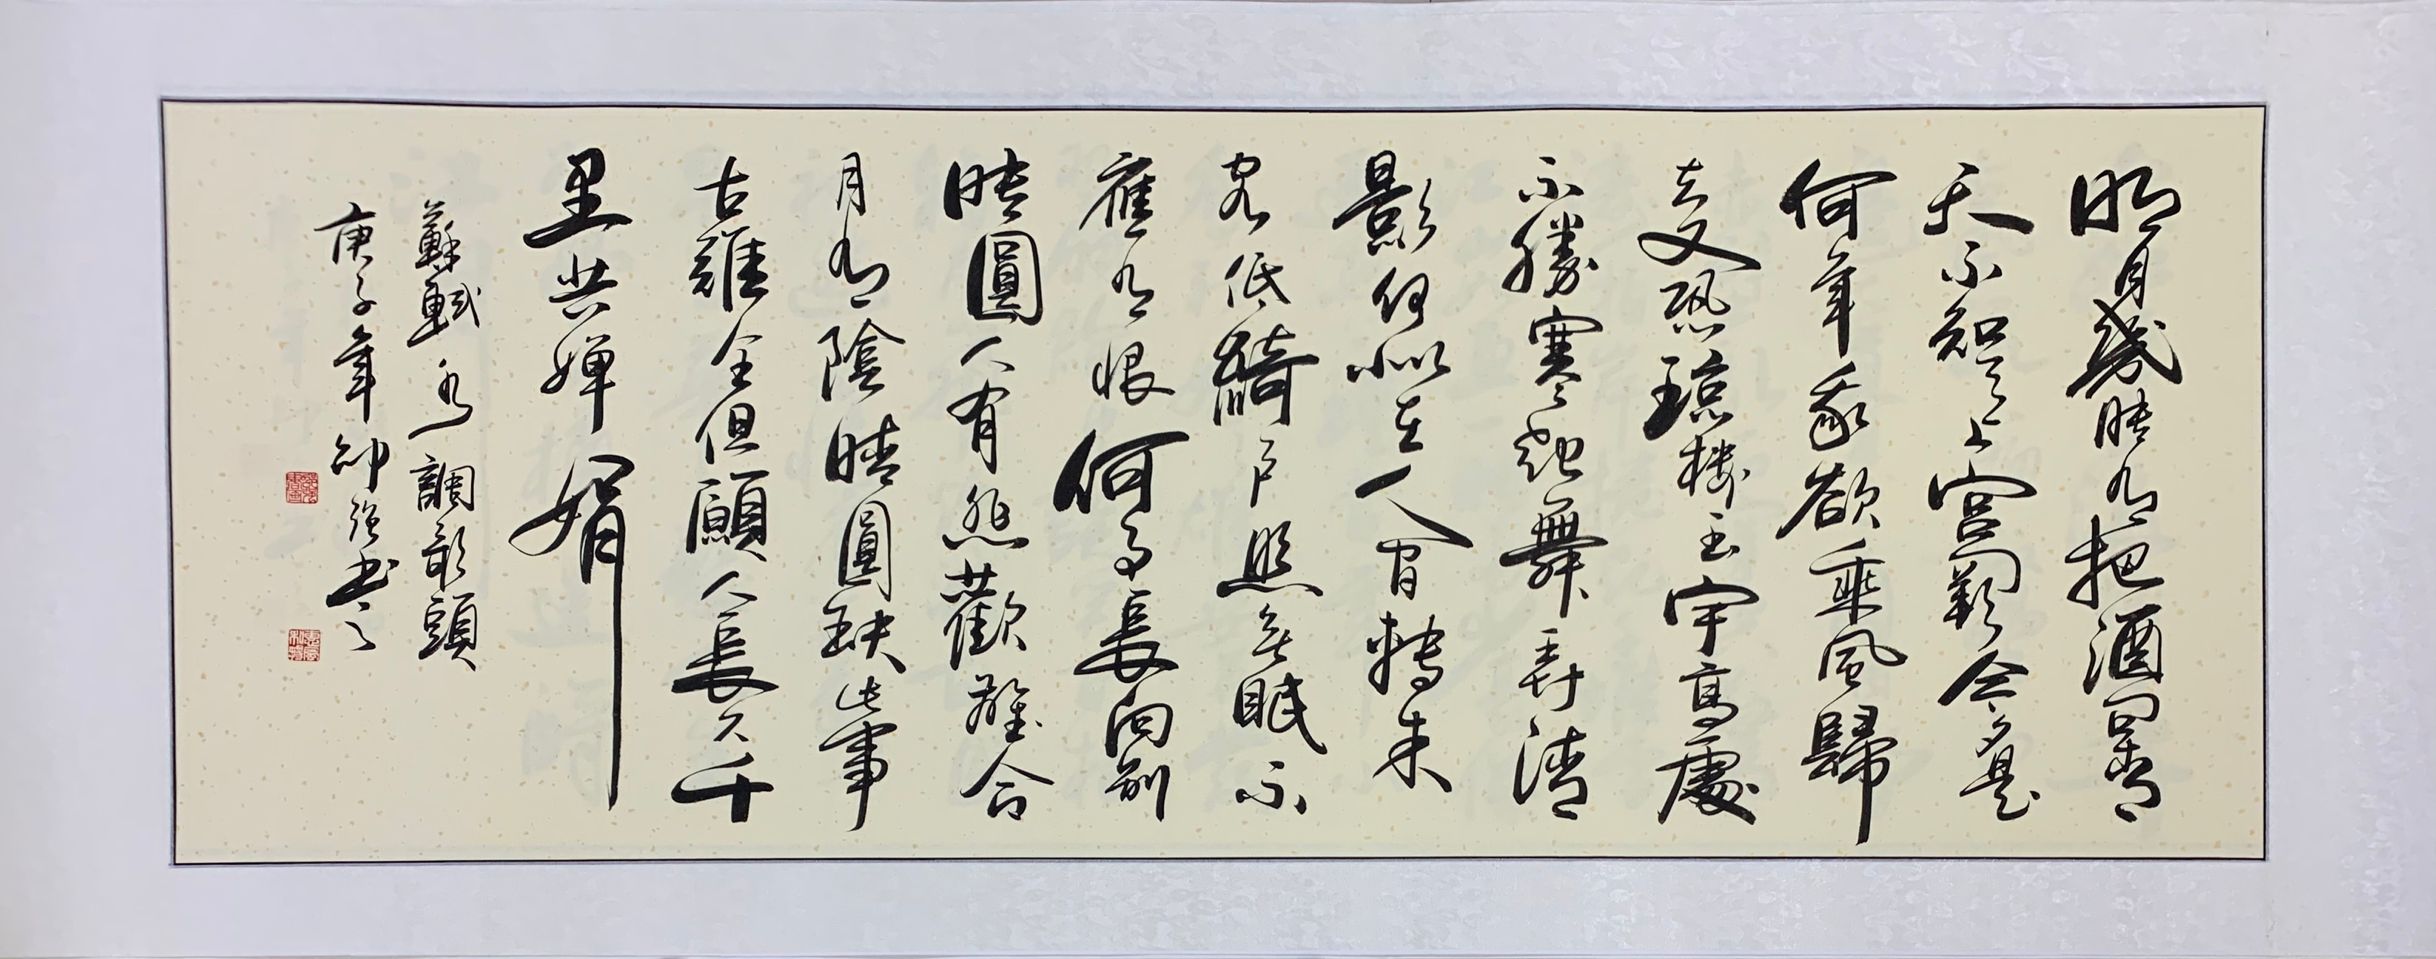 明月幾時有把酒問青
天不知天上宫闕今夕是
何年我欲乘風歸
去又恐琼楼玉宇高處
不勝寒起舞弄清
影何似在人間轉朱
閣低綺户照無眠不
應有恨何事長向别
時圓人有悲歡離合
月有陰晴圓缺此事
古難全但願人長久千
里共嬋娟
蘇軾水調歌頭
庚子年帅强书之